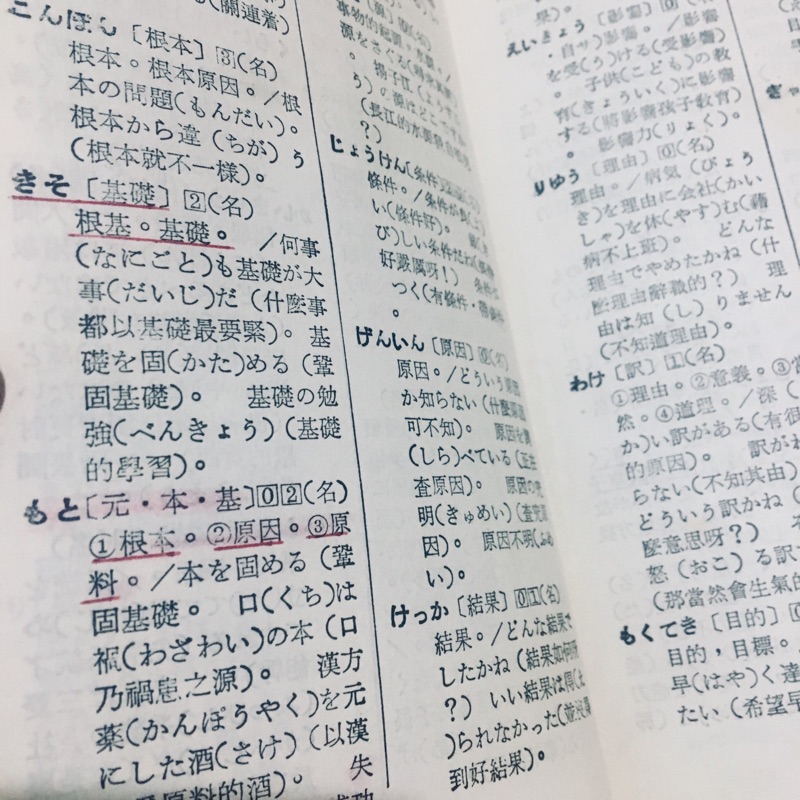 (關連着)
こんぽん［根本］③(名)
根本。根本原因。／根
本の問題(もんだい)。
根本から違（ちが）う
(根本就不一樣)。
きそ［基礎］②(名)
根基。基礎。／何事
(なにごと)も基礎が大
事(だいじ)だ（什麼事
都以基礎最要緊)。基
礎を固(かた)める（鞏
固基礎)。 基礎の勉
強(べんきょう)（基礎
的學習)。
もと［元・本・基］⓪②(名)
①根本。②原因。③原
料。／本を固める（鞏
固基礎。 口(くち)は
禍(わざわい)の本（口
乃禍患之源)。 漢方
薬(かんぽうやく)を元
にした酒(さけ)（以漢
原料的酒)。 失
源をさぐる
揚子江
(長江的水
？)
じょうけん［条件］
條件。／条件が
い(條件好)。
び)しい条件だね
好嚴厲呀！) 条件
つく(有條件・帶條件
。
げんいん［原因］⓪(名)
原因。／どういう原因
か知らない（什麼原因
可不知)。 原因を調
(しら)べている（正在
査原因)。 原因の究
明(きゅめい)（査究原
因)。 原因不明(ふめ
い)。
けっか［結果］⓪①(名)
結果。／どんな結果で
したかね（結果如何
？) いい結果は得(え
)られなかった(並沒得
到好結果)。
果)。
えいきょう［影響］⓪(名
・自サ)影響。／影響
を受(う)ける(受影響
。 子供(こども)の教
育(きょういく)に影響
する(將影響孩子教育)
。 影響力(りょく)。
りゆう［理由］⓪(名)
理由。／病気（びょう
き)を理由に会社(かい
しゃ)を休(やす)む(藉
病不上班)。 どんな
理由でやめたかね（什
麼理由辭職的？) 理
由は知（し）りません
(不知道理由)。
わけ［訳］①(名)
①理由。②意義。③當
然。④道理。／深（
か)い訳がある(有很
的原因)。 訳がわ
らない(不知其由)
どういう訳かね（
麼意思呀？)
怒（おこ）る訳
(那當然會生氣的
もくてき［目的］⓪
目的，目標。
早(はや)く達
たい（希望早